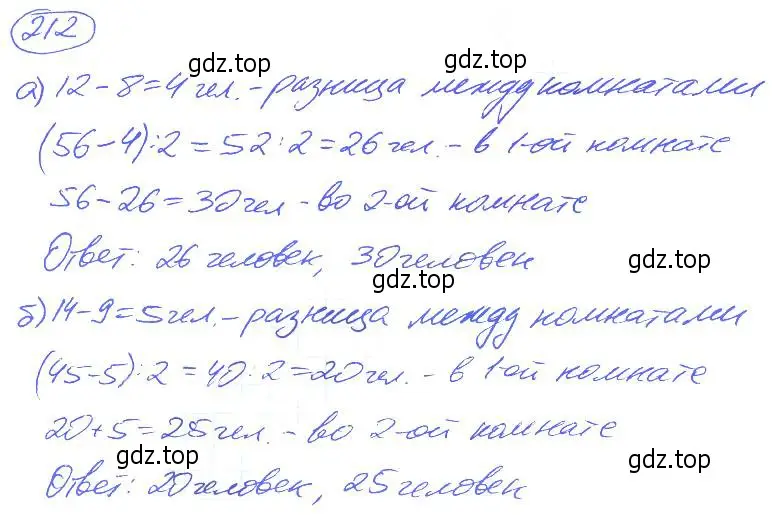 212
gdz.top
gdz.top
а) 12 - 8 = 4 чел. - разница между комнатами
(56 - 4) : 2 = 52 : 2 = 26 чел. - в 1-ой комнате
gdz.top
gdz.top
56 - 26 = 30 чел - во 2-ой комнате
Ответ: 26 человек, 30 человек
gdz.top
gdz.top
б) 14 - 9 = 5 чел. - разница между комнатами
(45 - 5) : 2 = 40 : 2 = 20 чел. - в 1-ой комнате
20 + 5 = 25 чел. - во 2-ой комнате
gdz.top
gdz.top
Ответ: 20 человек, 25 человек